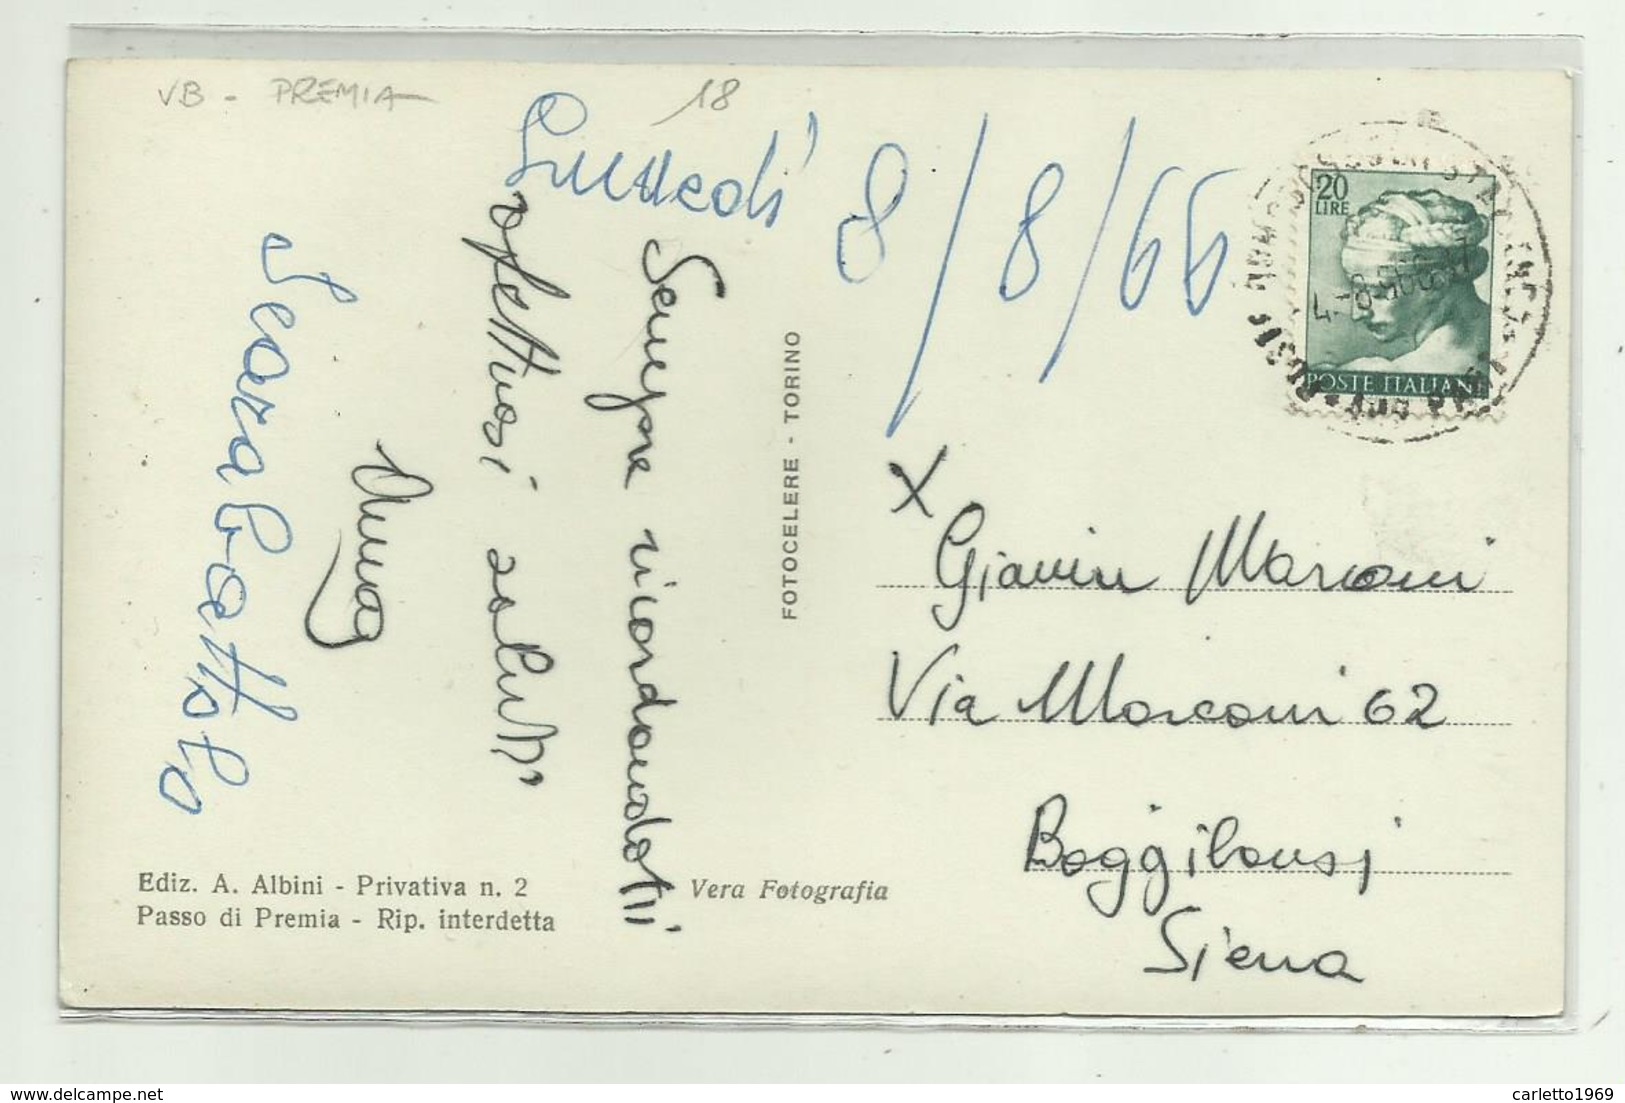 VB - PREMIA
18
Lunedì 8/8/66
Sempre ricordandoti
affettuosi saluti
Anna
FOTOCELERE - TORINO
20
LIRE
POSTE ITALIANE
X
Gianni Marconi
Via Marconi 62
Poggibonsi
Siena
Ediz. A. Albini - Privativa n. 2
Passo di Premia - Rip. interdetta
Vera Fotografia
delcampe.net
carletto1969